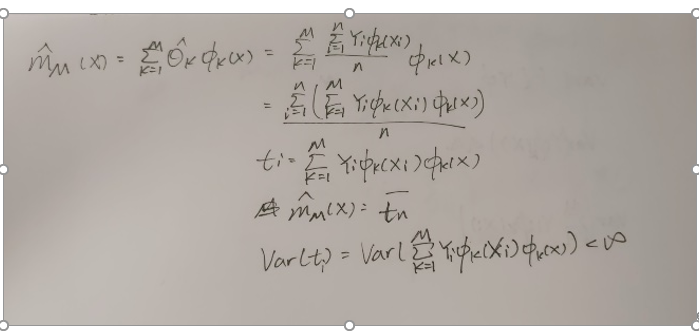 m̂_M(x) = Σ_{k=1}^{M} θ̂_k ϕ_k(x) = Σ_{k=1}^{M} (Σ_{i=1}^{n} Y_i ϕ_k(X_i) / n) ϕ_k(x)
= Σ_{i=1}^{n} (Σ_{k=1}^{M} Y_i ϕ_k(X_i) ϕ_k(x)) / n
t_i = Σ_{k=1}^{M} Y_i ϕ_k(X_i) ϕ_k(x)
m̂_M(x) = \overline{t_n}
Var(t_i) = Var(Σ_{k=1}^{M} Y_i ϕ_k(X_i) ϕ_k(x)) < ∞